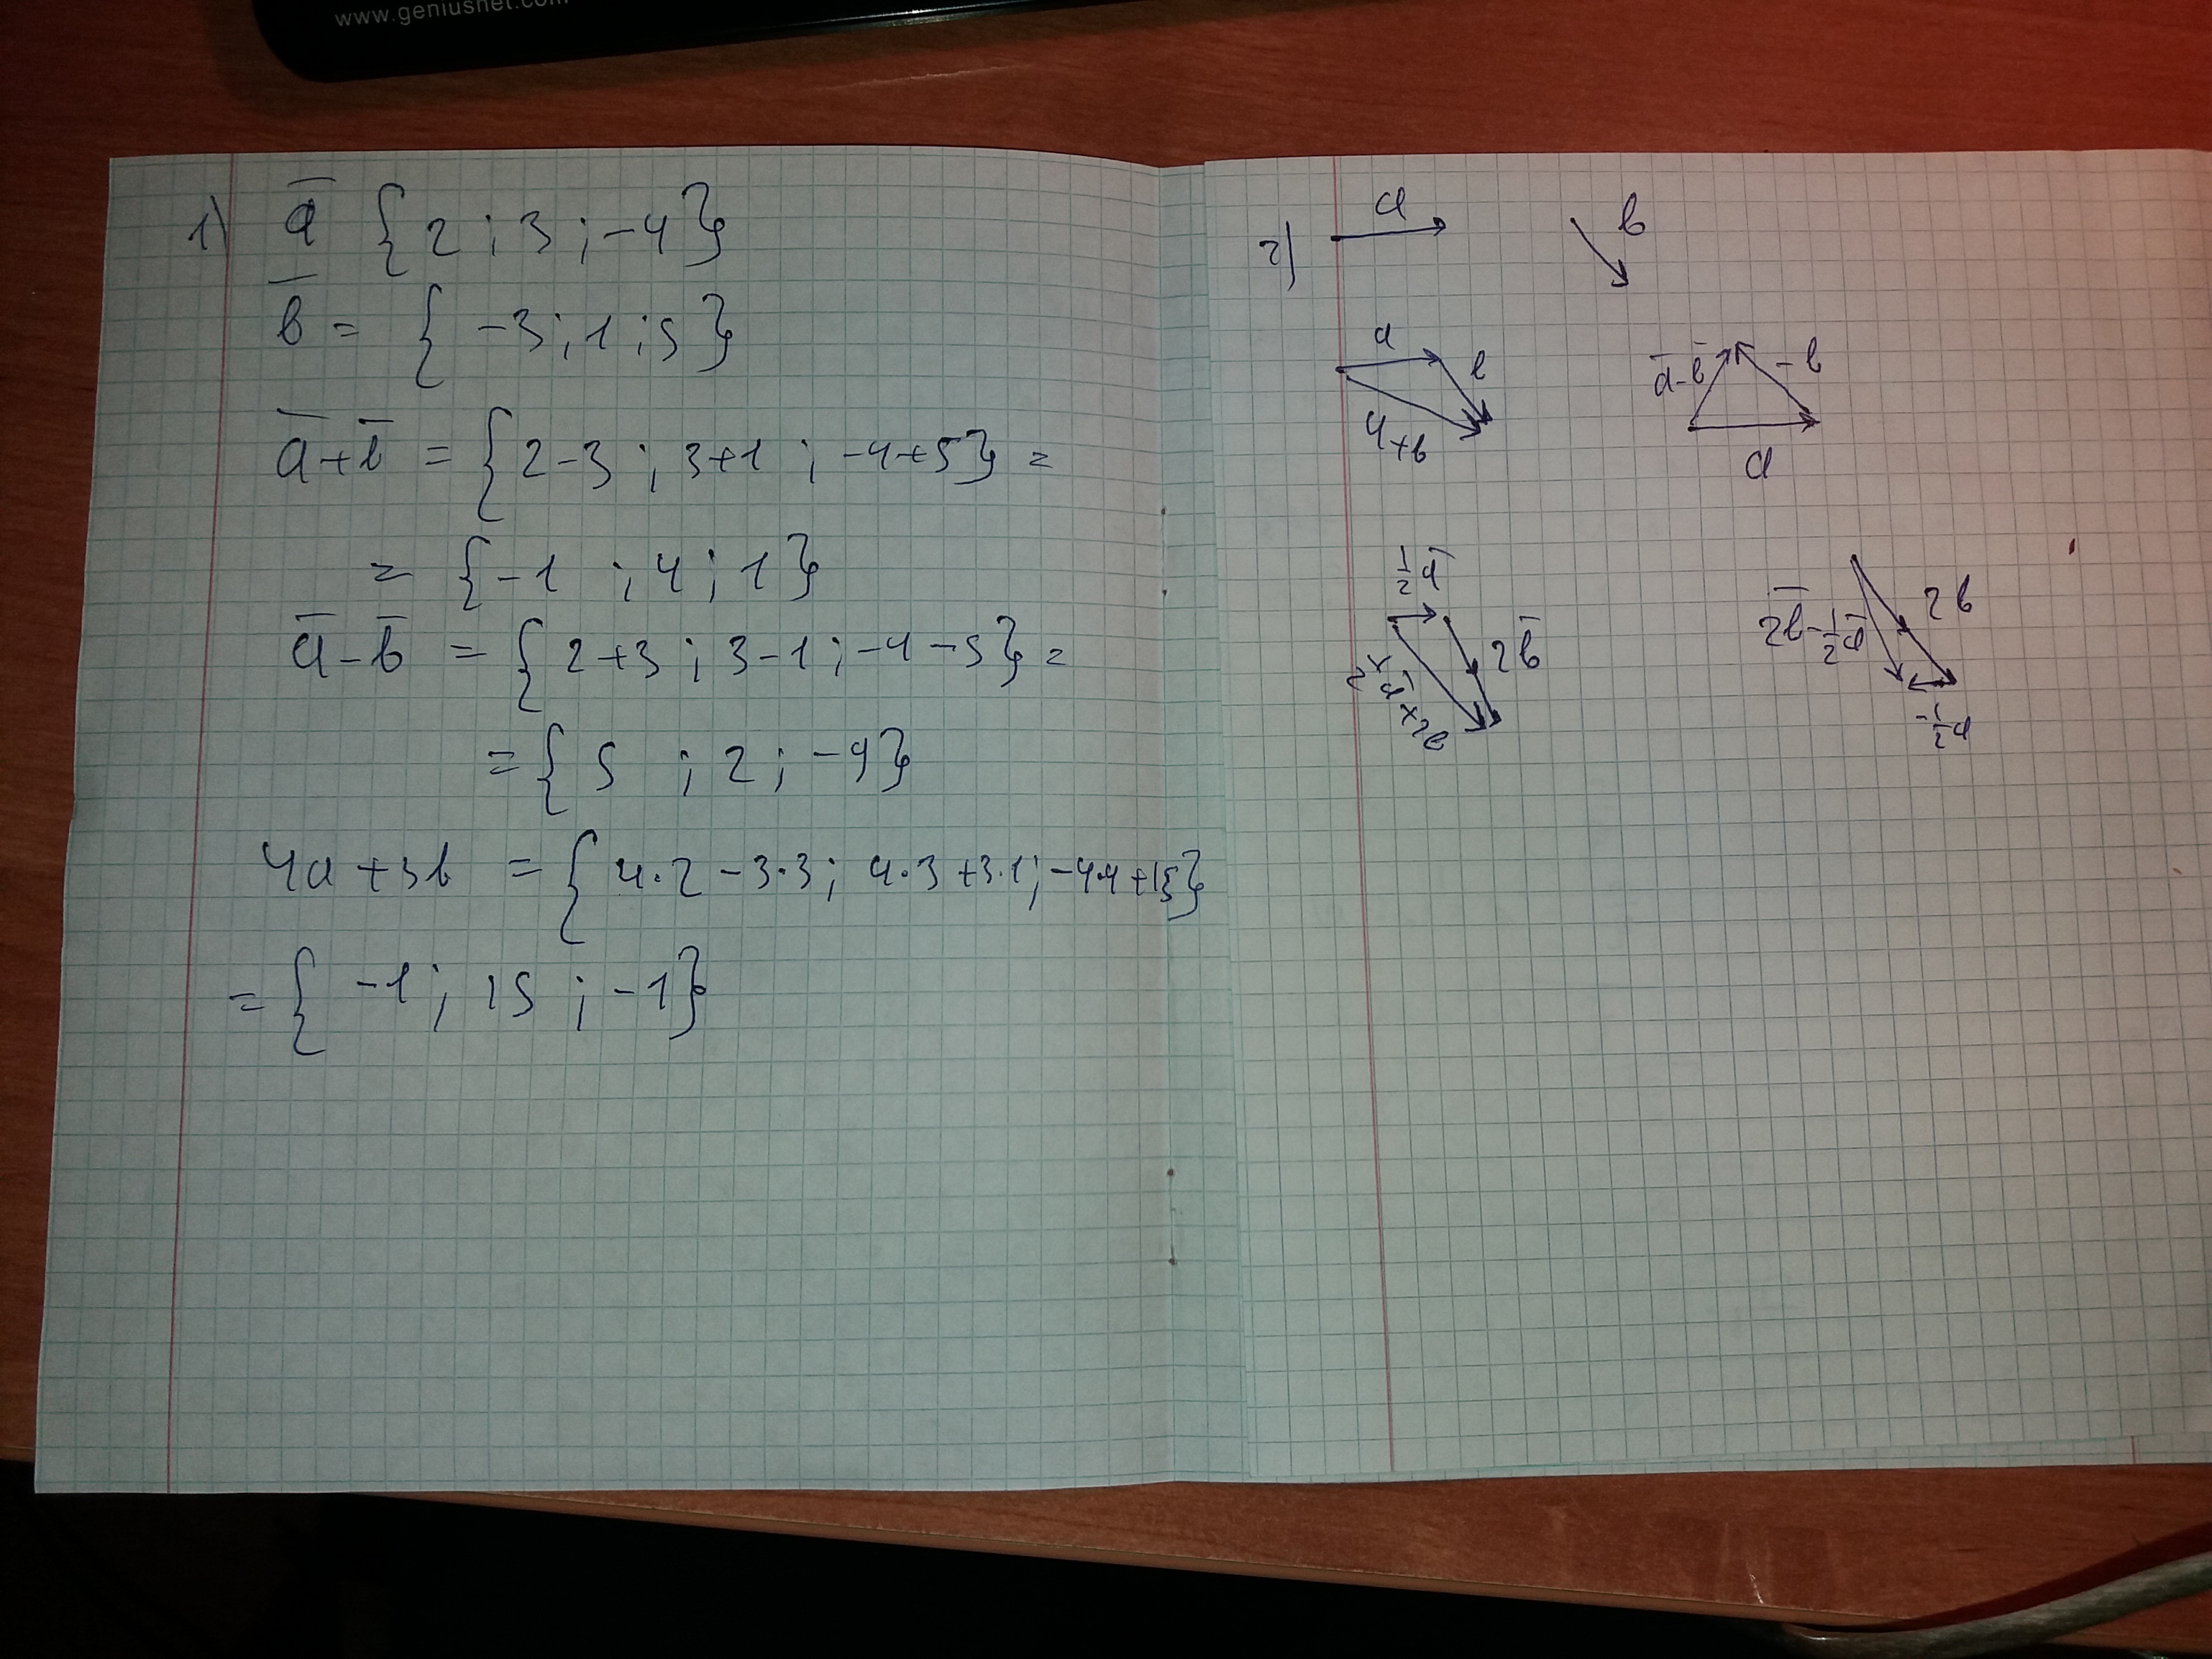 www.geniusnet.com
1) a̅ {2 ; 3 ; -4}
b̅ = { -3 ; 1 ; 5 }
a̅+b̅ = {2-3 ; 3+1 ; -4+5} =
= {-1 ; 4 ; 1}
a̅-b̅ = {2+3 ; 3-1 ; -4-5} =
= {5 ; 2 ; -9}
4a+3b = {4·2-3·3; 4·3+3·1; -4·4+15}
= { -1 ; 15 ; -1}
2) a b
a b
a+b
a̅-b̅ -b
a
1/2 a̅
2b̅
1/2 a̅+2b
2b̅-1/2 a̅ 2b
-1/2 a